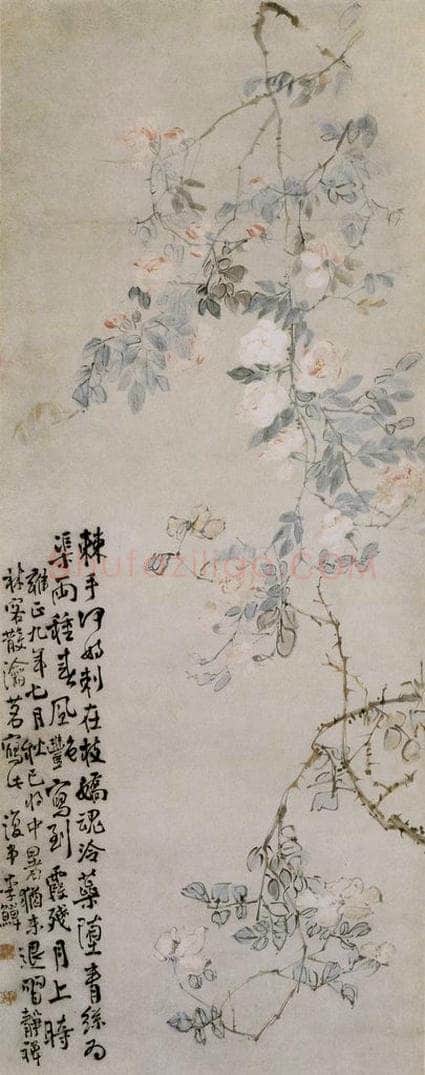 棘手何妨刺在枝嬌魂冷蘂墮青絲為
渠兩種春風豔寫到霞殘月上時
雍正九年七月秋已將中暑猶未退習靜禪
林客散瀹茗寫此復堂李鱓